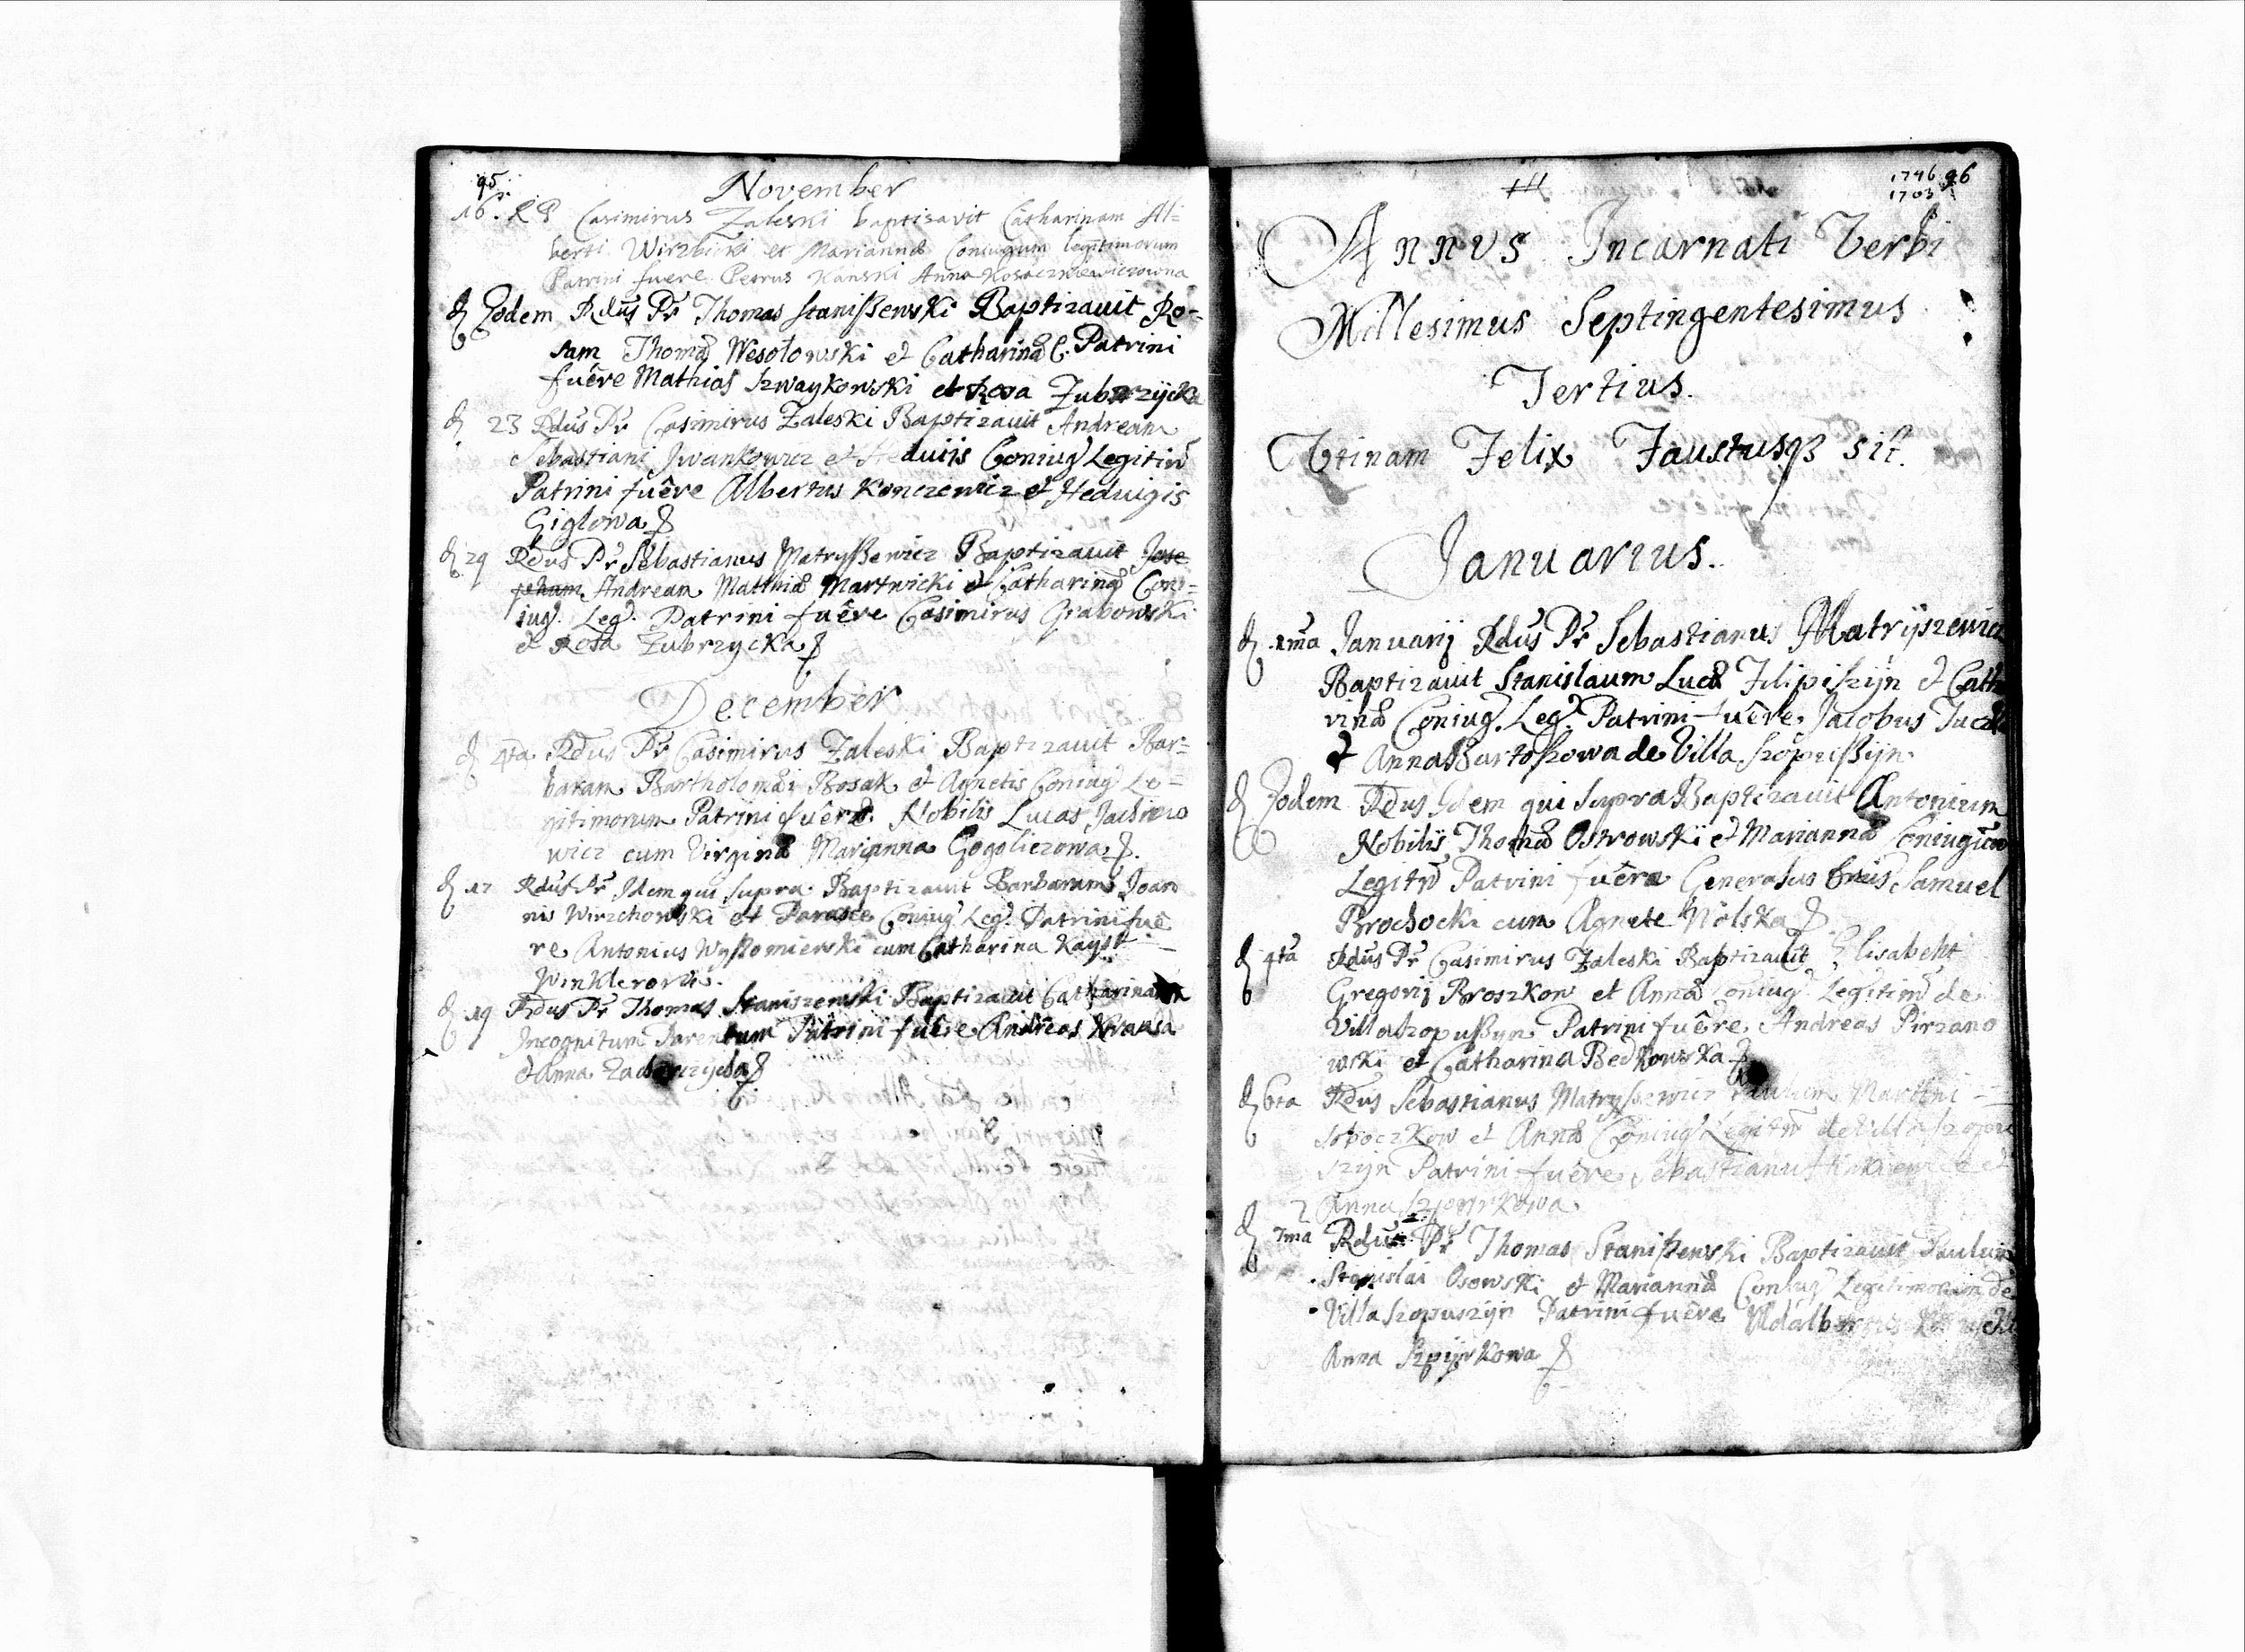 95
November
16. R P Casimirus Zaleski baptisavit Catharinam Al=
berti Wirzbicki et Mariannæ Coniugum legitimorum
Patrini fuere Petrus Kanski Anna Kosaczkiewiczowna
d Eodem Rdus Pr Thomas Staniszewski Baptizauit Ro=
sam Thomæ Wesołowski et Catharinæ C. Patrini
fuêre Mathias Szwaykowski et Rosa Zubrzycka
d 23 Rdus Pr Casimirus Zaleski Baptizauit Andream
Sebastiani Jwankowicz et Heduiis Coniug Legitim
Patrini fuêre Albertus Konczewicz et Heduigis
Giglowa
d 29 Rdus Pr Sebastianus Matryszewicz Baptizauit Jose
phum Andream Matthiæ Martwicki et Catharinæ Con=
iug. Leg. Patrini fuêre Casimirus Grabowski
et Rosa Zubrzycka
December
d 4ta Rdus Pr Casimirus Zaleski Baptizauit Bar=
baram Bartholomæi Bosak et Agnetis Coniug Le=
gitimorum Patrini fuêre Nobilis Lucas Jachimo
wicz cum Virginæ Marianna Gogoliczowa
d 17 Rdus Pr Idem qui supra Baptizauit Barbaram Joan
nis Wirzchowski et Coniug Leg. Patrini fuê
re Antonius Wyszomierski cum Catharina Kayst
Winklerowi.
d 19 Rdus Pr Thomas Staniszewski Baptizauit Catharinam
Incognitum Parentum Patrini fuêre Andreas Krausa
et Anna
1746 96
1703
Annus Incarnati Verbi
Millesimus Septingentesimus
Tertius.
Utinam Felix Faustusq3 sit.
Januarius.
d 1ma Januarij Rdus Pr Sebastianus Matryszewicz
Baptizauit Stanislaum Lucæ Filipiszyn et Catha
rinæ Coniug. Leg. Patrini fuêre Jacobus
et Anna Bartoszowa de Villa Szopiszyn
d Eodem Rdus Idem qui supra Baptizauit Antonium
Nobilis Thomæ Ostrowski et Mariannæ Coniugum
Legitm Patrini fuêre Generosus Dnus Samuel
Brochocki cum Agnete Wolska
d 4ta Rdus Pr Casimirus Zaleski Baptizauit Elisabeht
Gregorij Broszkow et Annæ Coniug Legitim de
Villa Szopuszyn Patrini fuêre Andreas Pirzano
wski et Catharina Bedkowska
d 6ta Rdus Sebastianus Matryszewicz Martini
Soboczkow et Annæ Coniug Legitm de Villa Szopu
szyn Patrini fuêre Sebastianus et
Anna Szpyrkowa
d 7ma Rdus Pr Thomas Staniszewski Baptizauit Paulum
Stanislai Osowski et Mariannæ Coniug Legitimorum de
Villa Szopuszyn Patrini fuêre
Anna Szpyrkowa